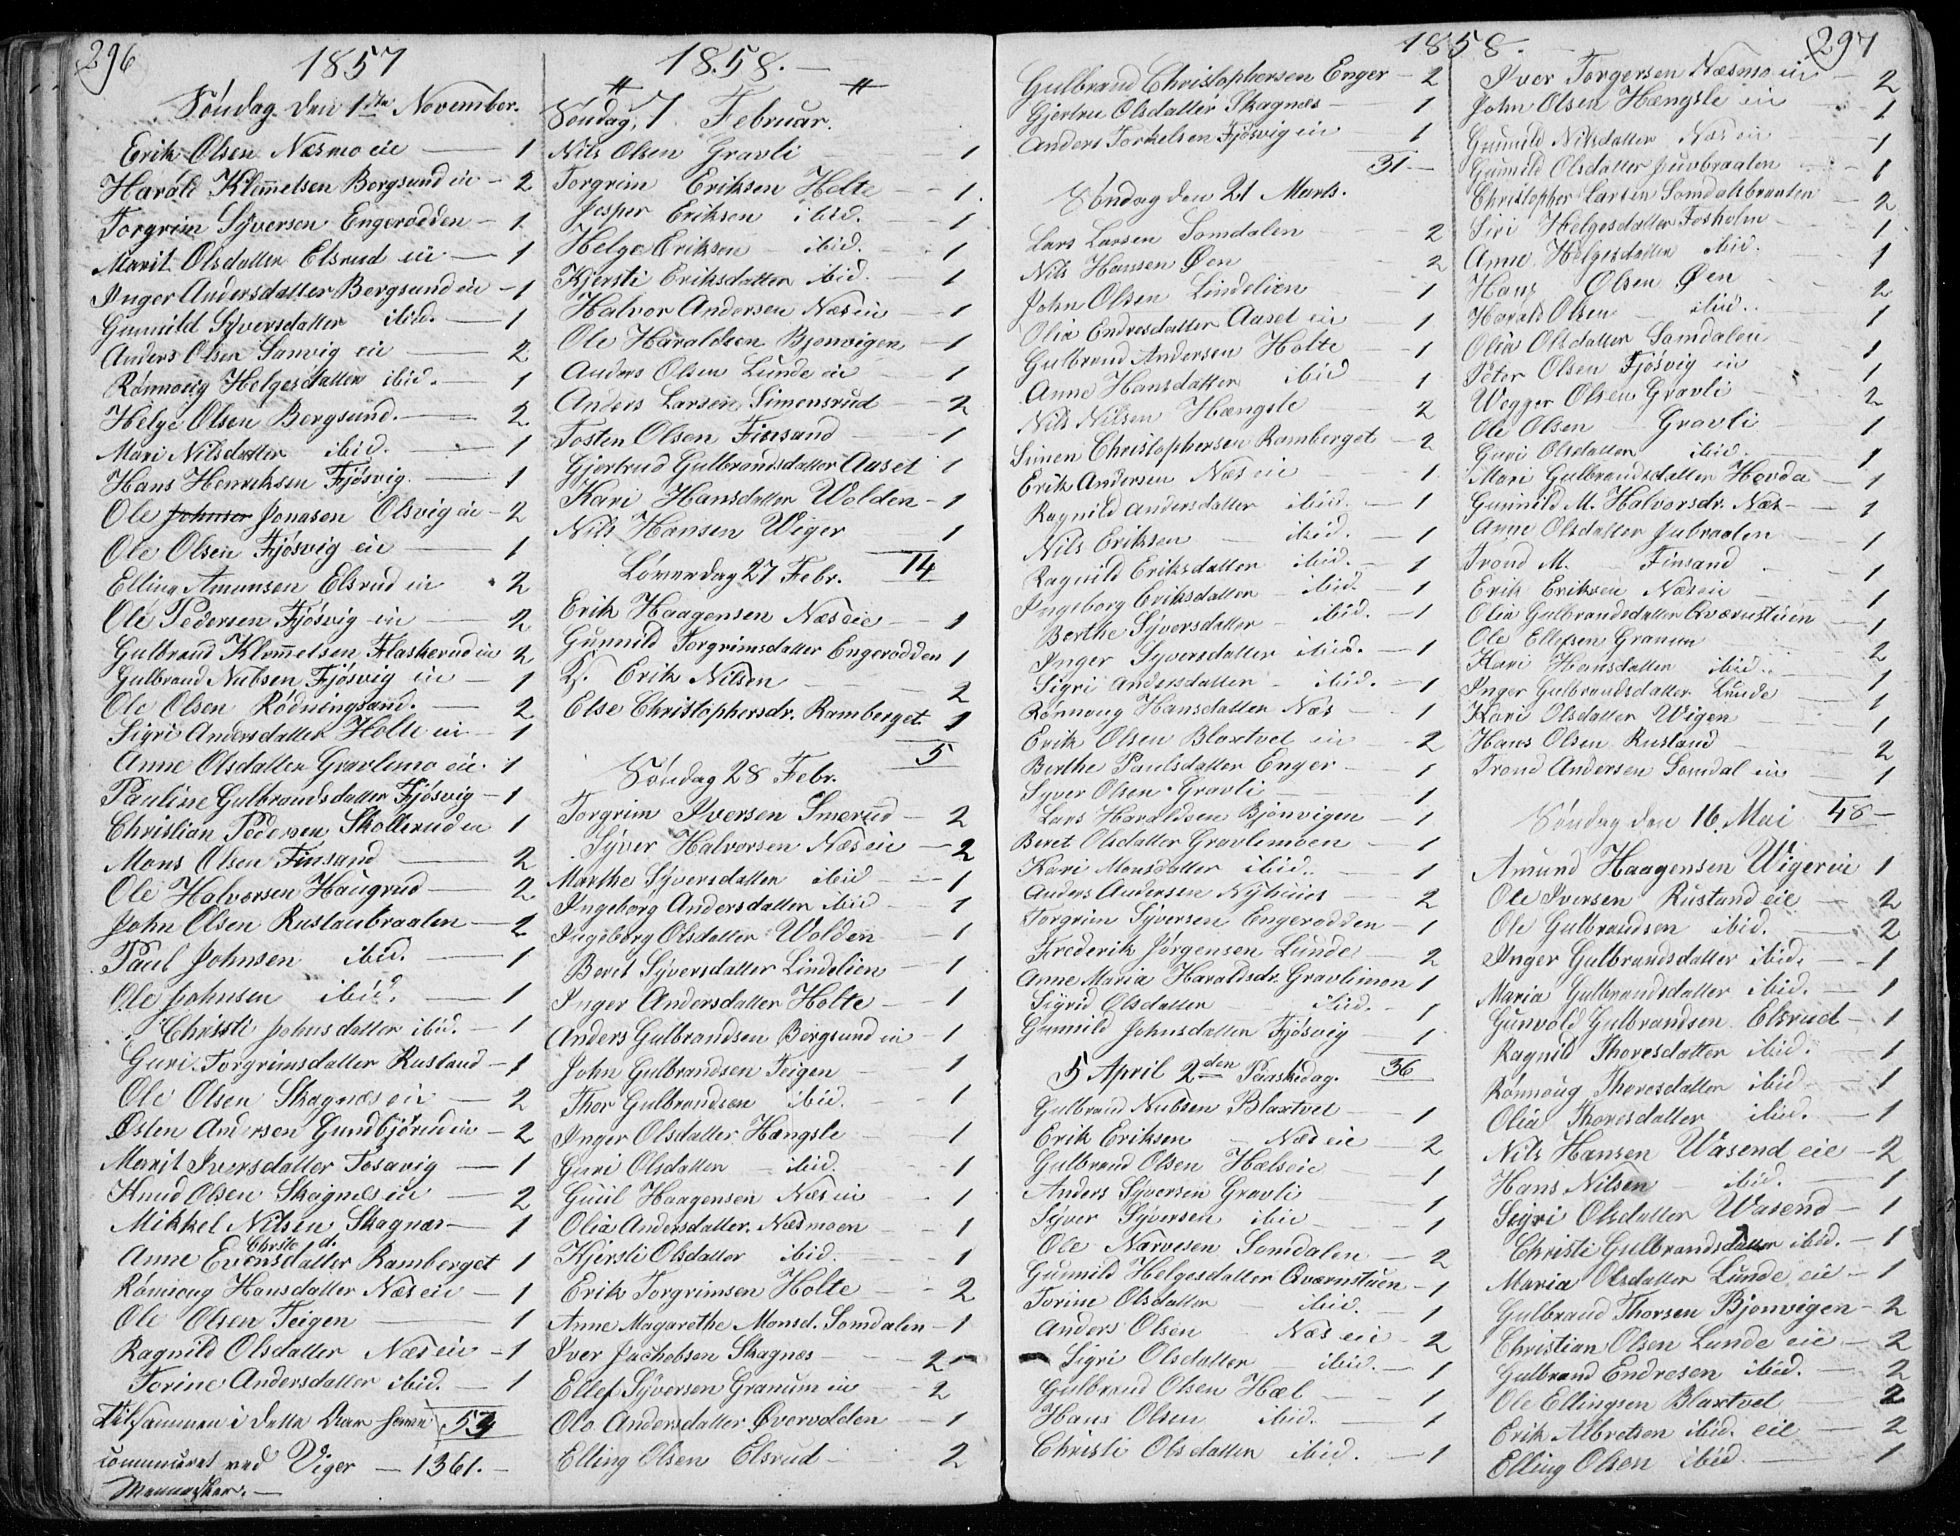 296
1857
Søndag den 1ste November.
Erik Olsen Næsmo eie — 1
Harald Klemmetsen Bergsund eie — 2
Torgrim Syversen Engerodden — 1
Marit Olsdatter Elsrud eie — 1
Inger Andersdatter Bergsund eie — 1
Gunnild Syversdatter ibid. — 1
Anders Olsen Sanvig eie — 2
Rønnoug Helgesdatter ibid. — 1
Helge Olsen Bergsund. — 2
Mari Nilsdatter ibid. — 1
Hans Henriksen Fjøsvig. — 1
Ole Johnsen Jonasen Olsvig eie — 2
Ole Olsen Fjøsvig eie — 1
Elling Amunsen Elsrud eie — 2
Ole Pedersen Fjøsvig eie — 2
Gulbrand Klemmetsen Flaskerud eie 2
Gulbrand Nubsen Fjøsvig eie — 1
Ole Olsen Rødningsand. — 2
Sigri Andersdatter Holte eie — 1
Anne Olsdatter Gravlimo eie. 1
Pauline Gulbrandsdatter Fjøsvig — 1
Christian Pedersen Skollerud eie 1
Mons Olsen Finsand — 2
Ole Halvorsen Haugrud — 2
John Olsen Rustanbraaten — 2
Paul Johnsen ibid. — 1
Ole Johnsen ibid. — 1
Christi Johnsdatter ibid. — 1
Guri Torgrimsdatter Rustand — 1
Ole Olsen Skagnæs eie — 2
Østen Andersen Gundbjørud eie — 2
Marit Iversdatter Tosavig — 1
Knud Olsen Skagnæs eie — 2
Mikkel Nilsen Skagnæs — 1
Christ d.
Anne Evensdatter Ramberget 1
Rønnoug Hansdatter Næs eie — 1
Ole Olsen Teigen — 1
Ragnild Olsdatter Næs eie — 1
Torine Andersdatter ibid. — 1
Tilsammen i dette Aar 53
communicret ved Viger — 1361. —
Mennesker. —
1858. —
Søndag 7 Februar.
Nils Olsen Gravli — 1
Torgrim Eriksen Holte — 1
Jesper Eriksen ibid. — 1
Helge Eriksen ibid. — 1
Kjersti Eriksdatter ibid. — 1
Halvor Andersen Næs eie — 1
Ole Haraldsen Bjonvigen — 1
Anders Olsen Lunde eie — 1
Anders Larsen Simensrud — 2
Tosten Olsen Finsand — 1
Gjertrud Gulbrandsdatter Aaset 1
Kari Hansdatter Wolden — 1
Nils Hansen Wiger — 1
14
Løverdag 27 Febr.
Erik Haagensen Næs eie — 1
Gunnild Torgrimsdatter Engerodden 1
Erik Nilsen — 2
Else Christophersdr. Ramberget. 1
5
Søndag 28 Febr.
Torgrim Iversen Smerud — 2
Syver Halvorsen Næs eie — 2
Marthe Syversdatter ibid — 1
Ingeborg Andersdatter ibid — 1
Ingeborg Olsdatter Wolden — 1
Beret Syversdatter Lindelien — 1
Inger Andersdatter Holte — 1
Anders Gulbrandsen Bergsund eie — 1
John Gulbrandsen Teigen — 1
Thor Gulbrandsen ibid. — 1
Inger Olsdatter Hængsle — 1
Guri Olsdatter — ibid. — 1
Guul Haagensen Næs eie — 1
Olia Andersdatter Næsmoen — 1
Kjersti Olsdatter ibid. — 1
Erik Torgrimsen Holte — 2
Anne Magarethe Monsd. Somdalen — 1
Iver Jachobsen Skagnæs — 2
Ellef Syversen Granum eie — 2
Olo Andersdatter Øvervolden — 1
Elling Olsen Elsrud — 2
1858. —
Gulbrand Christophersen Enger — 2
Gjertru Olsdatter Skagnæs — 1
Anders Torkelsen Fjøsvig eie — 1
31 —
Søndag den 21 Marts.
Lars Larsen Somdalen — 2
Nils Hansen Øen — 2
John Olsen Lindelien — 1
Olia Endresdatter Aaset eie — 1
Gulbrand Andersen Holte — 1
Anne Hansdatter ibid — 1
Nils Nilsen Hængsle — 2
Simen Christophersen Ramberget — 2
Erik Andersen Næs eie — 1
Ragnild Andersdatter ibid. — 1
Nils Eriksen — ibid. — 1
Ragnild Eriksdatter ibid. — 1
Ingeborg Eriksdatter — ibid. — 1
Berthe Syversdatter — ibid. — 1
Inger Syversdatter ibid. — 1
Sigri Andersdatter — ibid. — 1
Rønnoug Hansdatter Næs — 1
Erik Olsen Blaxtvet eie — 2
Berthe Paulsdatter Enger — 1
Syver Olsen Gravli — 1
Lars Haraldsen Bjonvigen — 1
Beret Olsdatter Gravlimoen — 1
Kari Monsdatter ibid. — 1
Anders Andersen Nyhuus — 2
Torgrim Syversen Engerodden — 1
Frederik Jørgensen Lunde — 2
Anne Maria Haraldsdr. Gravlimon 1
Sigrid Olsdatter — ibid. — 1
Gunnild Johnsdatter Fjøsvig — 1
36
5 April 2den Paaskedag.
Gulbrand Nubsen Blaxtvet — 1
Erik Eriksen — Næs eie — 2
Gulbrand Olsen Hæls eie — 1
Anders Syversen Gravli — 1
Syver Syversen ibid — 1
Ole Narvesen Somdalen — 2
Gunnild Helgesdatter Qværnstuen — 1
Torine Olsdatter — ibid. — 1
Anders Olsen — Næs eie — 2
Sigri Olsdatter — ibid. — 1
Gulbrand Olsen Hæl — 1
Hans Olsen ibid. — 1
Christi Olsdatter ibid. — 1
297
Iver Torgersen Næsmo eie — 2
John Olsen Hængsle eie — 1
Gunnild Nilsdatter Næs eie — 1
Gunnild Olsdatter Juvbraaten — 1
Christopher Larsen Somdalsbraaten — 2
Siri Helgesdatter Fosholm — 1
Anne Helgesdatter ibid. — 1
Hans Olsen Øen — 2
Harald Olsen — ibid. — 1
Olia Olsdatter Somdalen — 1
Peter Olsen Fjøsvig eie — 1
Wegger Olsen Gravli — 2
Ole Olsen — Gravli — 1
Guri Olsdatter ibid. — 1
Mari Gulbrandsdatter Hovda — 1
Gunnild M. Halvorsdr. Næs — 1
Anne Olsdatter Jubraaten — 1
Trond M. Finsand — 1
Erik Eriksen Næs eie — 1
Olia Gulbrandsdatter Qværnstuen — 1
Ole Ellefsen Granum — 2
Kari Hansdatter ibid. — 1
Inger Gulbrandsdatter Lunde — 1
Kari Olsdatter Wigen — 1
Hans Olsen Rustand — 2
Trond Andersen Somdal eie — 1
48 —
Søndag den 16. Mai
Amund Haagensen Wiger eie 1
Ole Iversen Rustand eie — 2
Ole Gulbrandsen ibid. — 2
Inger Gulbrandsdatter ibid. — 1
Maria Gulbrandsdatter ibid. — 1
Gunvold Gulbrandsen Elsrud — 1
Ragnild Thoresdatter ibid. — 1
Rønnoug Thoresdatter ibid — 1
Olia Thoresdatter ibid. — 1
Nils Hansen Wasend eie — 2
Hans Nilsen — ibid. — 1
Sigri Olsdatter Wasend — 1
Christi Gulbrandsdatter ibid. — 1
Maria Olsdatter Lunde eie — 1
Gulbrand Thorsen Bjonvigen — 2
Christian Olsen Lunde eie — 2
Gulbrand Endresen ibid. — 2
Ole Ellingsen Blaxtvet — 2
Erik Albretsen ibid. eie — 2
Elling Olsen ibid. — 1